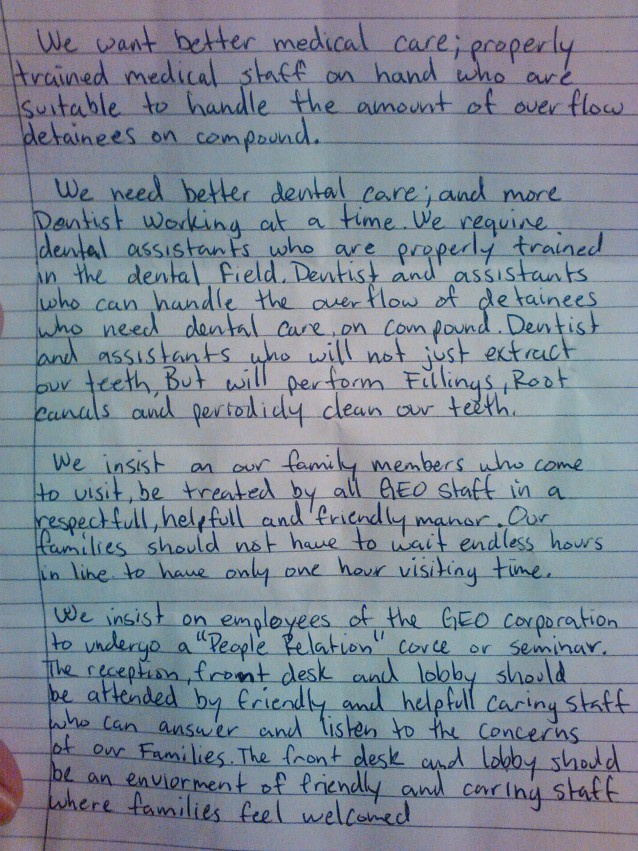 We want better medical care; properly
trained medical staff on hand who are
suitable to handle the amount of over flow
detainees on compound.
We need better dental care; and more
Dentist working at a time. We require
dental assistants who are properly trained
in the dental field. Dentist and assistants
who can handle the over flow of detainees
who need dental care, on compound. Dentist
and assistants who will not just extract
our teeth, But will perform Fillings, Root
canals and periodicly clean our teeth.
We insist on our family members who come
to visit, be treated by all GEO staff in a
respectfull, helpfull and friendly manor. Our
families should not have to wait endless hours
in line to have only one hour visiting time.
We insist on employees of the GEO corporation
to undergo a "People Relation" corce or seminar.
The reception, front desk and lobby should
be attended by friendly and helpfull caring staff
who can answer and listen to the concerns
of our Families. The front desk and lobby should
be an enviorment of friendly and caring staff
where families feel welcomed